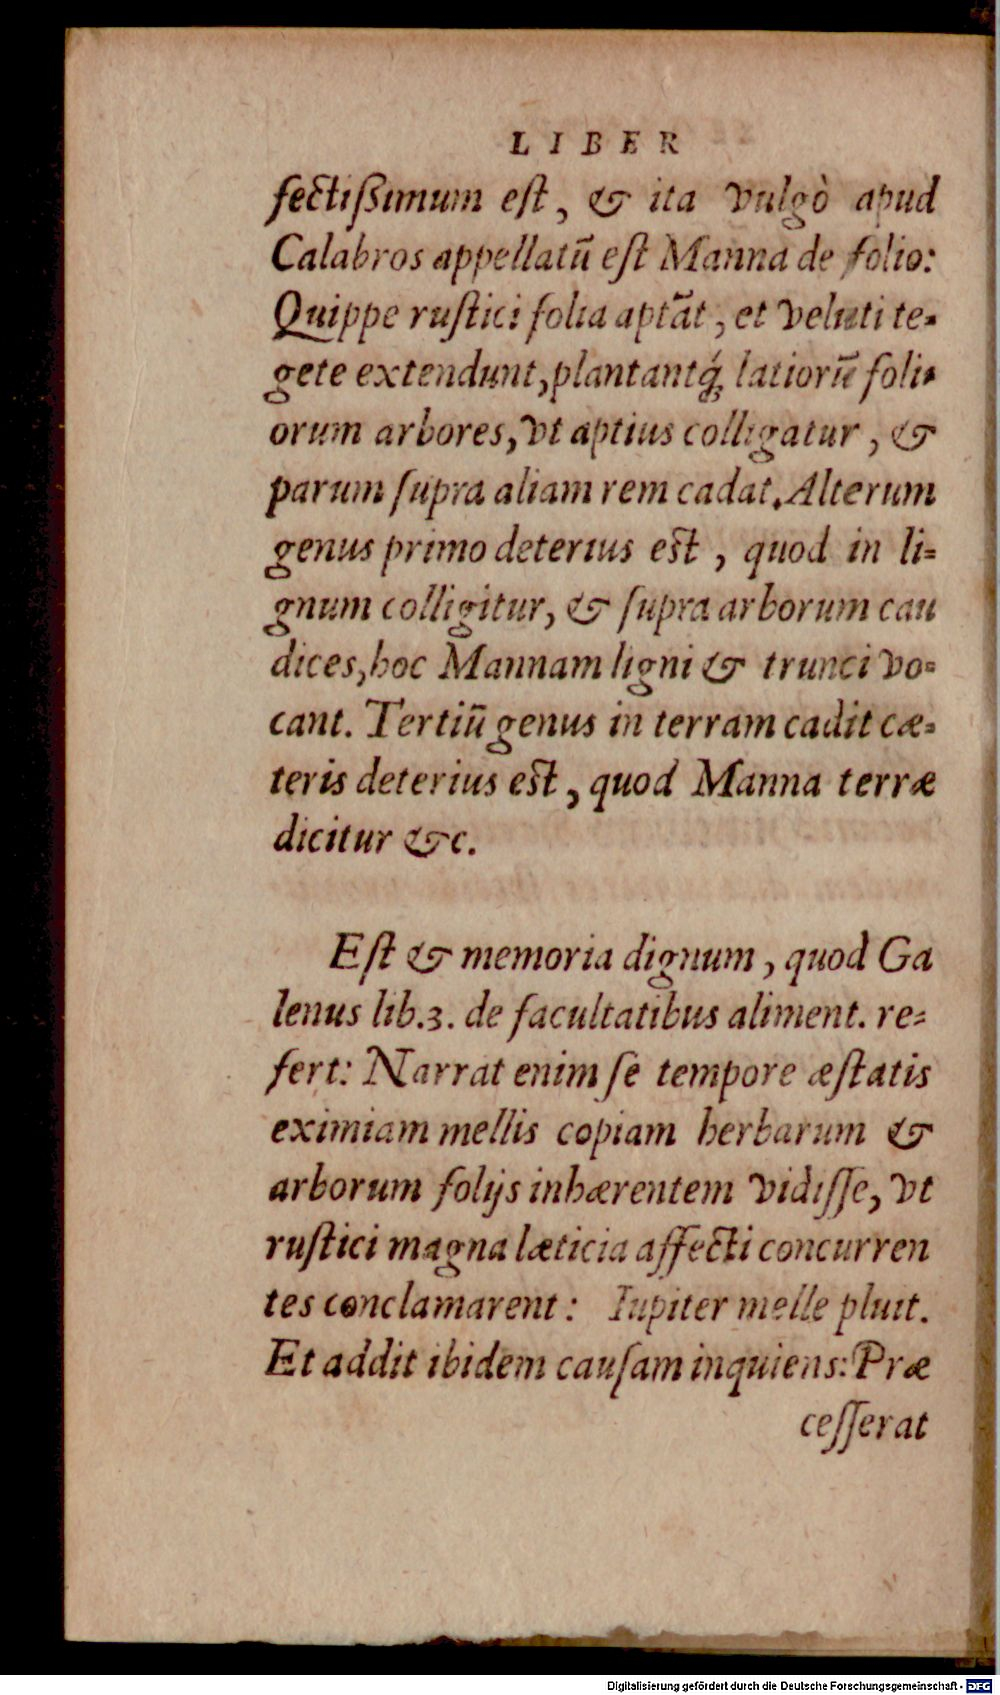 LIBER
fectißimum est, & ita vulgò apud
Calabros appellatũ est Manna de folio:
Quippe rustici folia aptãt, et veluti te-
gete extendunt, plantantq́; latiorũ foli-
orum arbores, vt aptius colligatur, &
parum supra aliam rem cadat. Alterum
genus primo deterius est, quod in li-
gnum colligitur, & supra arborum cau
dices, hoc Mannam ligni & trunci vo-
cant. Tertiũ genus in terram cadit cæ-
teris deterius est, quod Manna terræ
dicitur &c.
Est & memoria dignum, quod Ga
lenus lib. 3. de facultatibus aliment. re-
fert: Narrat enim se tempore æstatis
eximiam mellis copiam herbarum &
arborum folijs inhærentem vidisse, vt
rustici magna læticia affecti concurren
tes conclamarent: Iupiter melle pluit.
Et addit ibidem causam inquiens: Præ
cesserat
Digitalisierung gefördert durch die Deutsche Forschungsgemeinschaft - DFG